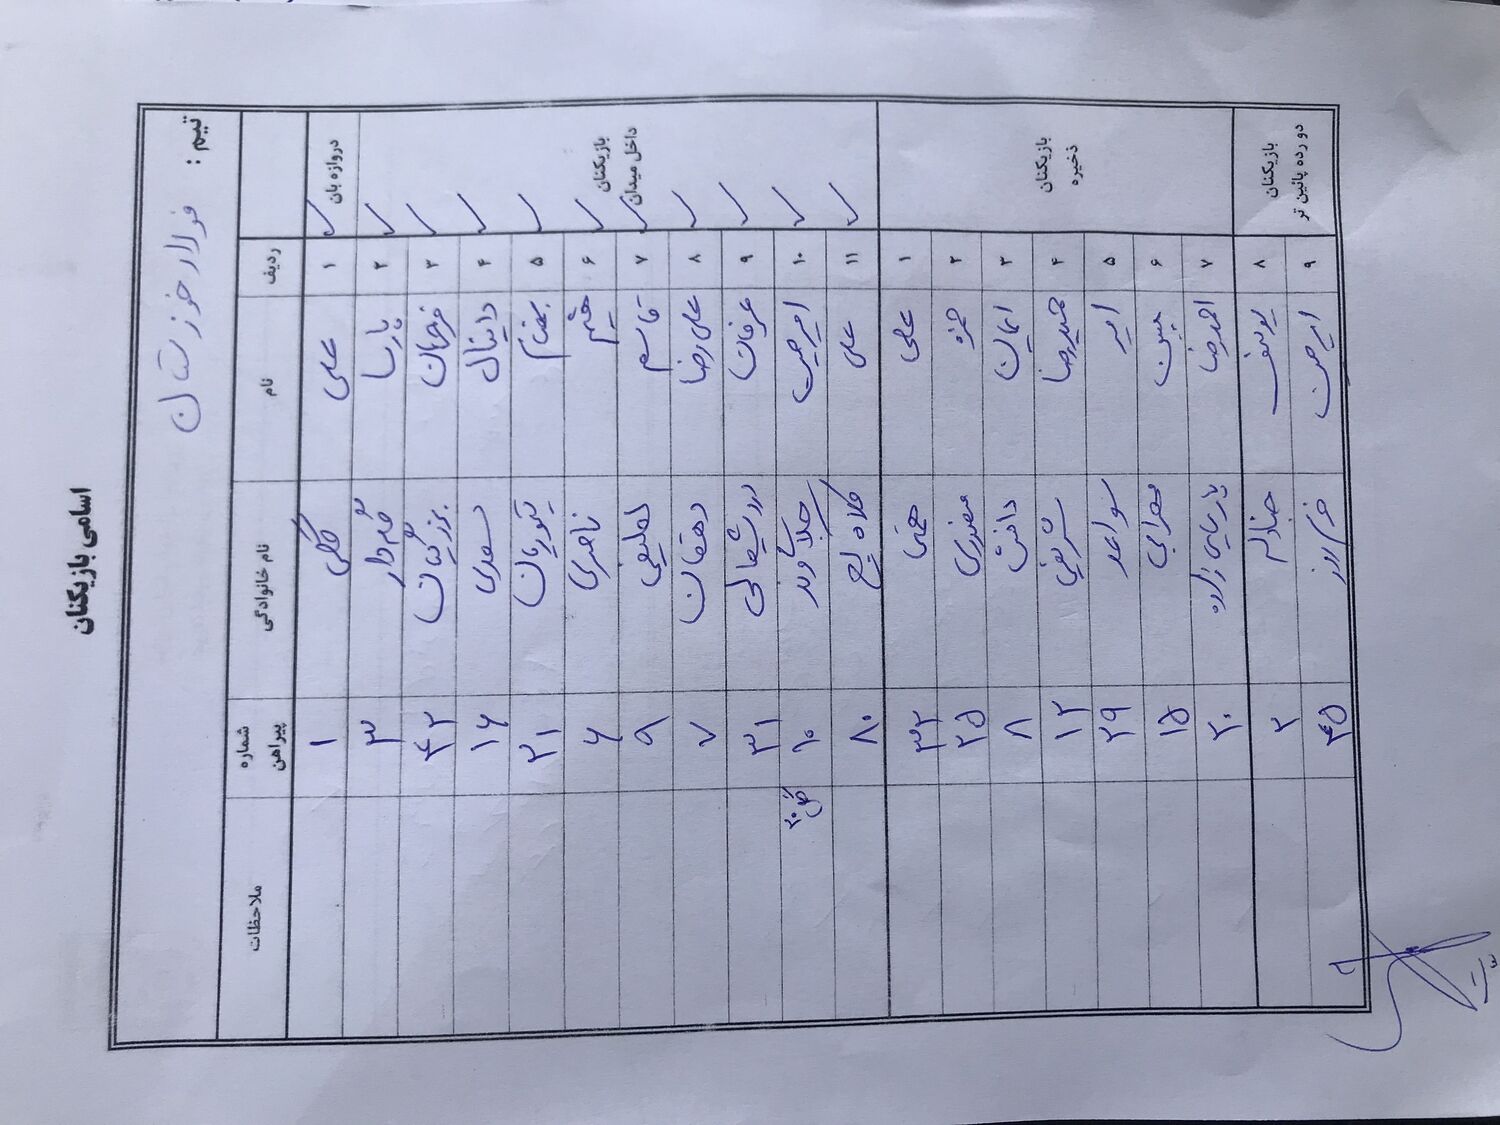 اسامی بازیکنان
تیم : فولاد خوزستان
ردیف نام نام خانوادگی شماره پیراهن ملاحظات
دروازه بان
۱ علی گلی ۱
بازیکنان داخل میدان
۲ پارسا گله دار ۳
۳ فرحان بزرگیان ۴۲
۴ دانیال سعدی ۱۶
۵ بهنام تیموریان ۲۱
۶ میثم ناصری ۶
۷ قاسم لطیفی ۹
۸ علی رضا دهقان ۷
۹ عرفان درشمالی ۳۱
۱۰ امیرحسین جلالوند ۱۰ گل ۲۰
۱۱ علی فلاح ۸۰
بازیکنان ذخیره
۱ علی ۳۲
۲ حمزه صفدری ۲۵
۳ ایمان دانش ۸
۴ حمیدرضا شریفی ۱۲
۵ امیر سواعد ۲۹
۶ حسین مهرابی ۱۵
۷ احمدرضا پارسایی زاده ۲۰
بازیکنان دو رده پائین تر
۸ یوسف ۲
۹ امیرحسین ۴۵